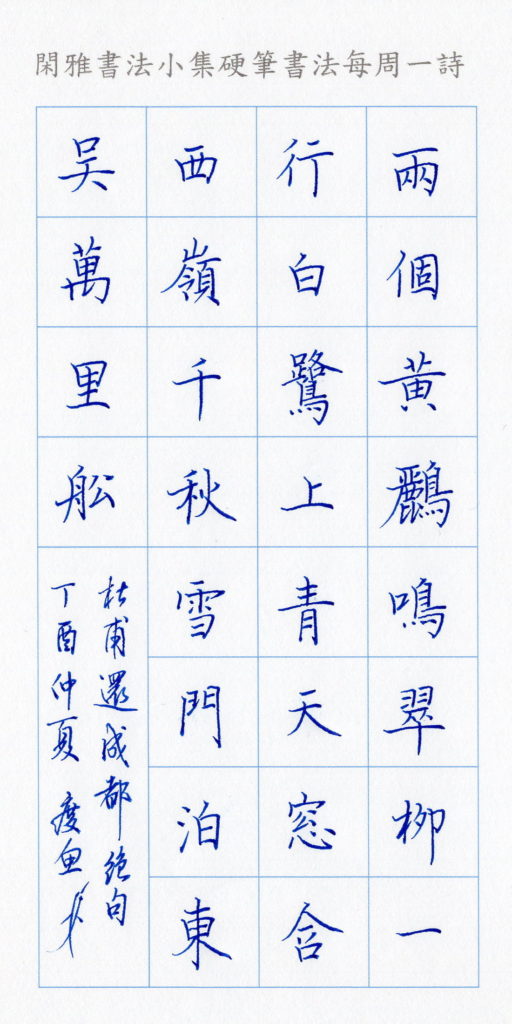 閑雅書法小集硬筆書法每周一詩
兩個黃鸝鳴翠柳一
行白鷺上青天窓含
西嶺千秋雪門泊東
吴萬里舩
杜甫還成都絕句
丁酉仲夏 度魚